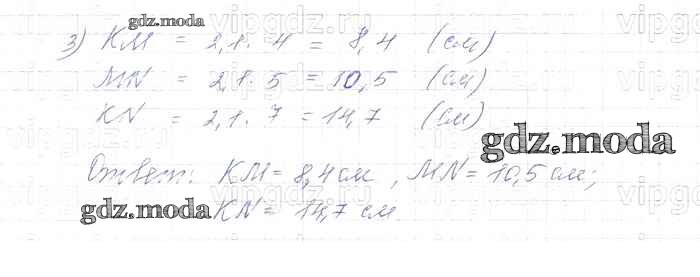 gdz.moda
3) KM = 2,1 · 4 = 8,4 (см)
MN = 2,1 · 5 = 10,5 (см)
KN = 2,1 · 7 = 14,7 (см)
gdz.moda
Ответ: KM = 8,4 см, MN = 10,5 см;
gdz.moda KN = 14,7 см.